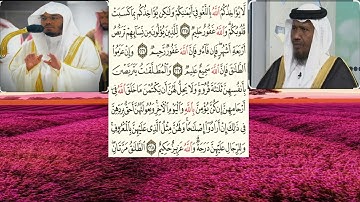 لَّا يُؤَاخِذُكُمُ ٱللَّهُ بِٱللَّغْوِ فِىٓ أَيْمَٰنِكُمْ وَلَٰكِن يُؤَاخِذُكُم بِمَا كَسَبَتْ
قُلُوبُكُمْ وَٱللَّهُ غَفُورٌ حَلِيمٌ ٢٢٥ لِّلَّذِينَ يُؤْلُونَ مِن نِّسَآئِهِمْ تَرَبُّصُ
أَرْبَعَةِ أَشْهُرٍ فَإِن فَآءُو فَإِنَّ ٱللَّهَ غَفُورٌ رَّحِيمٌ ٢٢٦ وَإِنْ عَزَمُوا۟
ٱلطَّلَٰقَ فَإِنَّ ٱللَّهَ سَمِيعٌ عَلِيمٌ ٢٢٧ وَٱلْمُطَلَّقَٰتُ يَتَرَبَّصْنَ
بِأَنفُسِهِنَّ ثَلَٰثَةَ قُرُوٓءٍ وَلَا يَحِلُّ لَهُنَّ أَن يَكْتُمْنَ مَا خَلَقَ ٱللَّهُ فِىٓ
أَرْحَامِهِنَّ إِن كُنَّ يُؤْمِنَّ بِٱللَّهِ وَٱلْيَوْمِ ٱلْءَاخِرِ وَبُعُولَتُهُنَّ أَحَقُّ بِرَدِّهِنَّ
فِى ذَٰلِكَ إِنْ أَرَادُوٓا۟ إِصْلَٰحًا وَلَهُنَّ مِثْلُ ٱلَّذِى عَلَيْهِنَّ بِٱلْمَعْرُوفِ
وَلِلرِّجَالِ عَلَيْهِنَّ دَرَجَةٌ وَٱللَّهُ عَزِيزٌ حَكِيمٌ ٢٢٨ ٱلطَّلَٰقُ مَرَّتَانِ